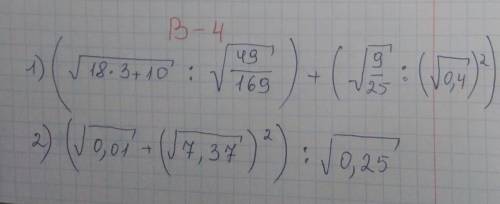 В-4
1) (√(18·3+10) : √(49/169)) + (√(9/25) : (√0,4)²)
2) (√0,01 + (√7,37)²) : √0,25